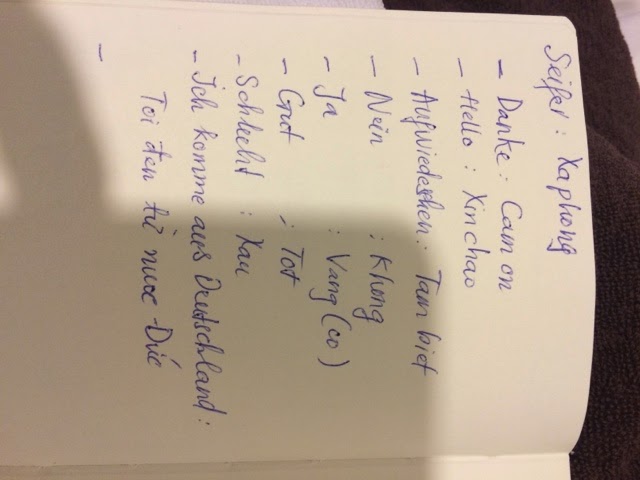 Seifer : Xaphong
- Danke : Cam on
- Hello : Xin chao
- Aufwiedesehen : Tam biet
- Nein : Khong
- Ja : Vang (co)
- Gut : Tot
- Schlecht : Xau
- Ich komme aus Deutschland :
Toi đen từ nươc Đức
-